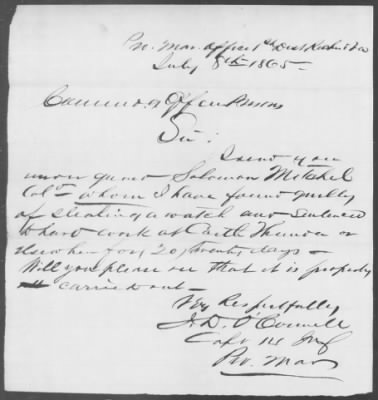 Pro. Mar. Office 1st Dist Richmd Va
July 8th 1865 -
Prison
Sir:
I send you
under guard Solomon Mitchel
Cold whom I have found guilty
of stealing a watch and sentenced
to hard work at Castle Thunder or
elsewhere for (20) twenty days -
Will you please see that it is properly
carried out -
Very Respectfully,
J. D. O'Connell
Capt 14 Inf
Pro. Mar